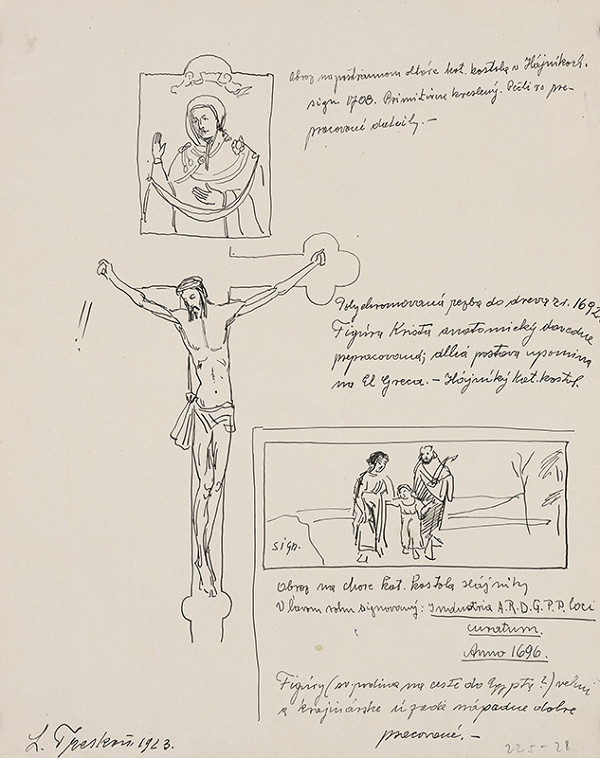 Obraz na postrannom oltáre kat. kostola v Hájnikoch.
sign 1708. Primitívne kreslený. Dosti
pracované detaily. —
Polychromovaná rezba do dreva z r. 1692
Figúra Krista anatomicky dovedne
prepracovaná; dlhá postava upomína
na El Greca. — Hájniký kat. kostol.
!!
sign.
Obraz na chore kat. kostola Hájniky
V ľavom rohu signovaný: Industria A.R.D.G.P.P. loci
curatum.
Anno 1696.
Figúry (sv. rodina na ceste do Egypta ?) velmi
a krajinárske nápadne dobre
pracované. —
1923.
225-28